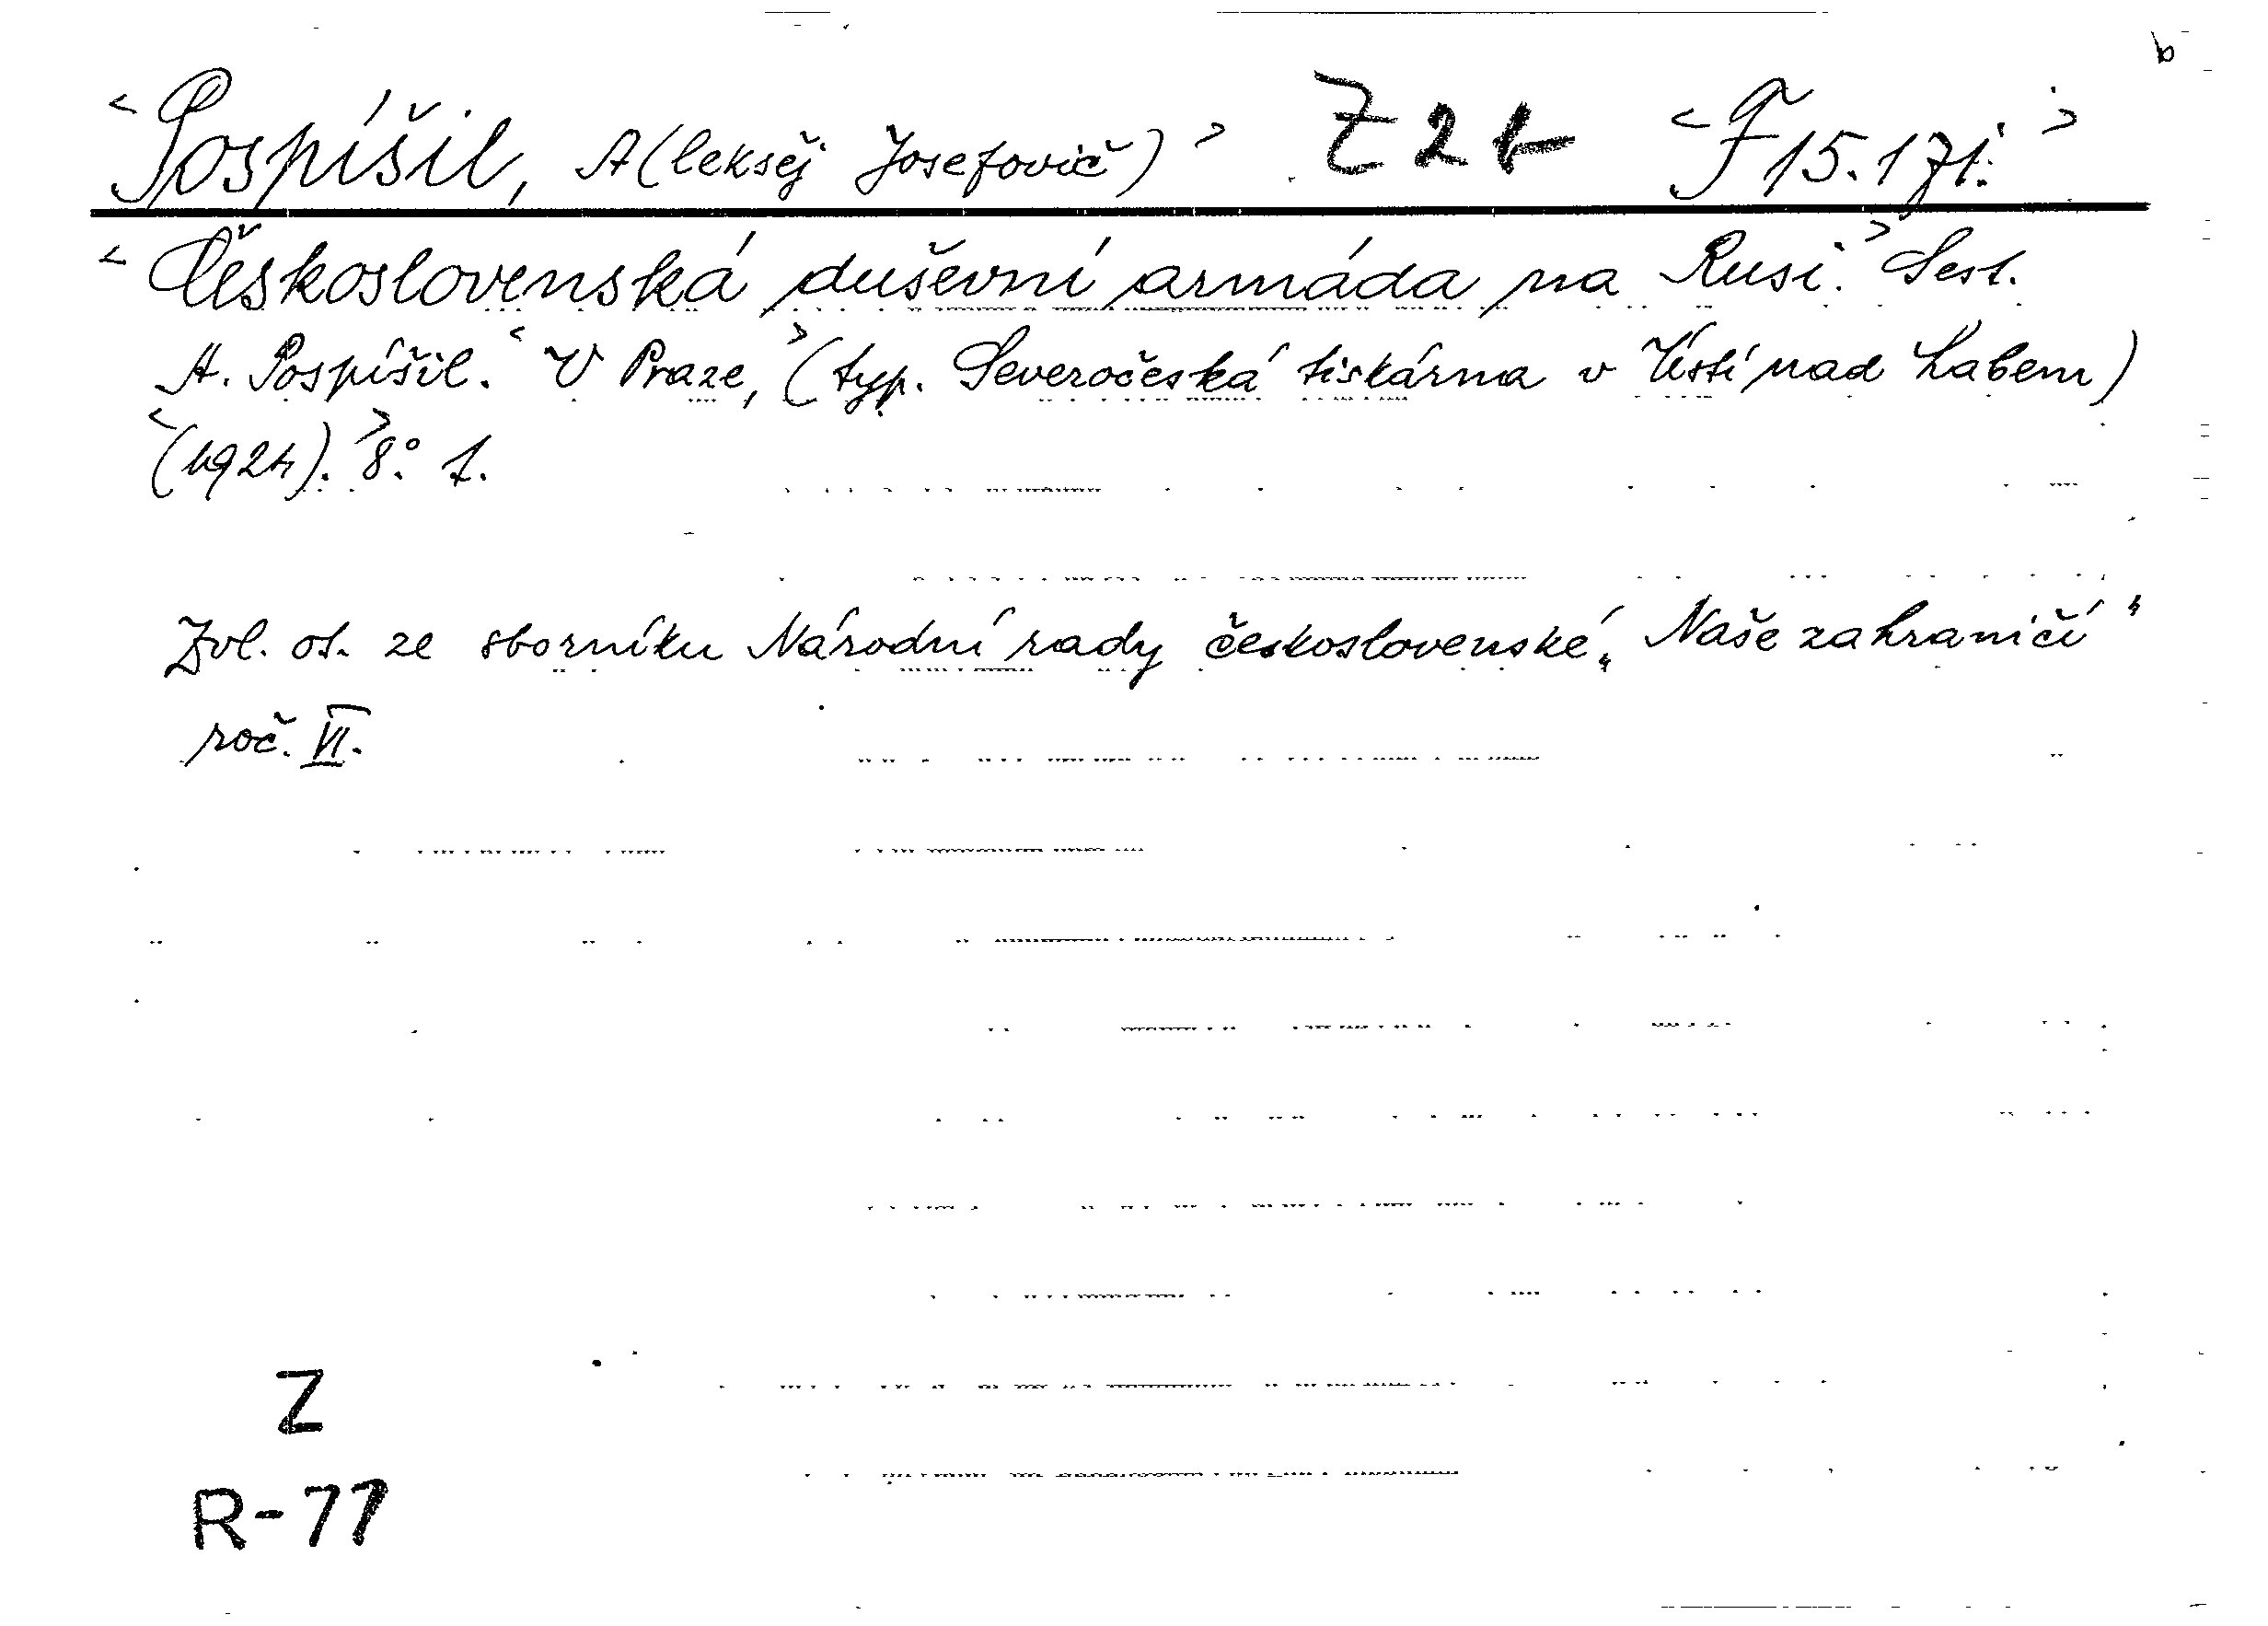 b
<Pospíšil, A(leksěj Josefovič)> Z 2 t <F 15.171.>
<Československá duševní armáda na Rusi.> Sest.
A. Pospíšil. <V Praze,> (typ. Severočeská tiskárna v Ústí nad Labem)
<(1924).> 8°. 1.
Zvl. ot. ze sborníku Národní rady československé „Naše zahraničí“
roč. VI.
Z
R-77